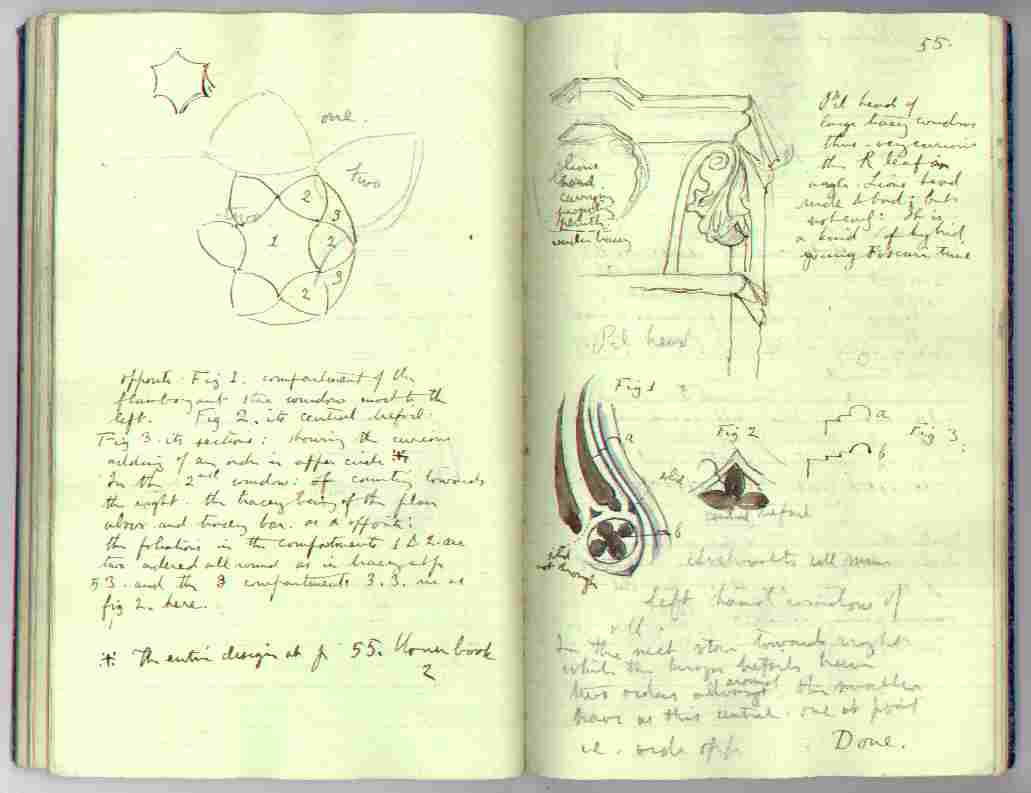 one.
two
2
3
1
2
3
2
opposite. Fig 1. compartment of the
flamboyant star window next to the
left. Fig 2. its central trefoil.
Fig 3. its sections: showing the curious
adding of an order in upper circle *
In the 2nd window: of counting towards
the right. the tracery being of the plan
above. and tracery bar. as a opposite:
the foliations in the compartments 1 & 2. are
two ordered all round as in tracery at p
53. and the 3 compartments 3. 3. in as
fig 2. here.
* The entire design at p 55. House book
2
55.
Pil head of
large tracery windows
thus - very curious
the R leaf in
angle. Lions head
is
a kind of hybrid,
lions
head
carrying
under tracery
Pil head
Fig 1
a
b
Fig 2
solid
central trefoil
a
b
Fig 3
solid
not through
left hand window of
In the next star towards right
while the larger trefoils have
two orders all round the smaller
have as this central. one at point
Done.